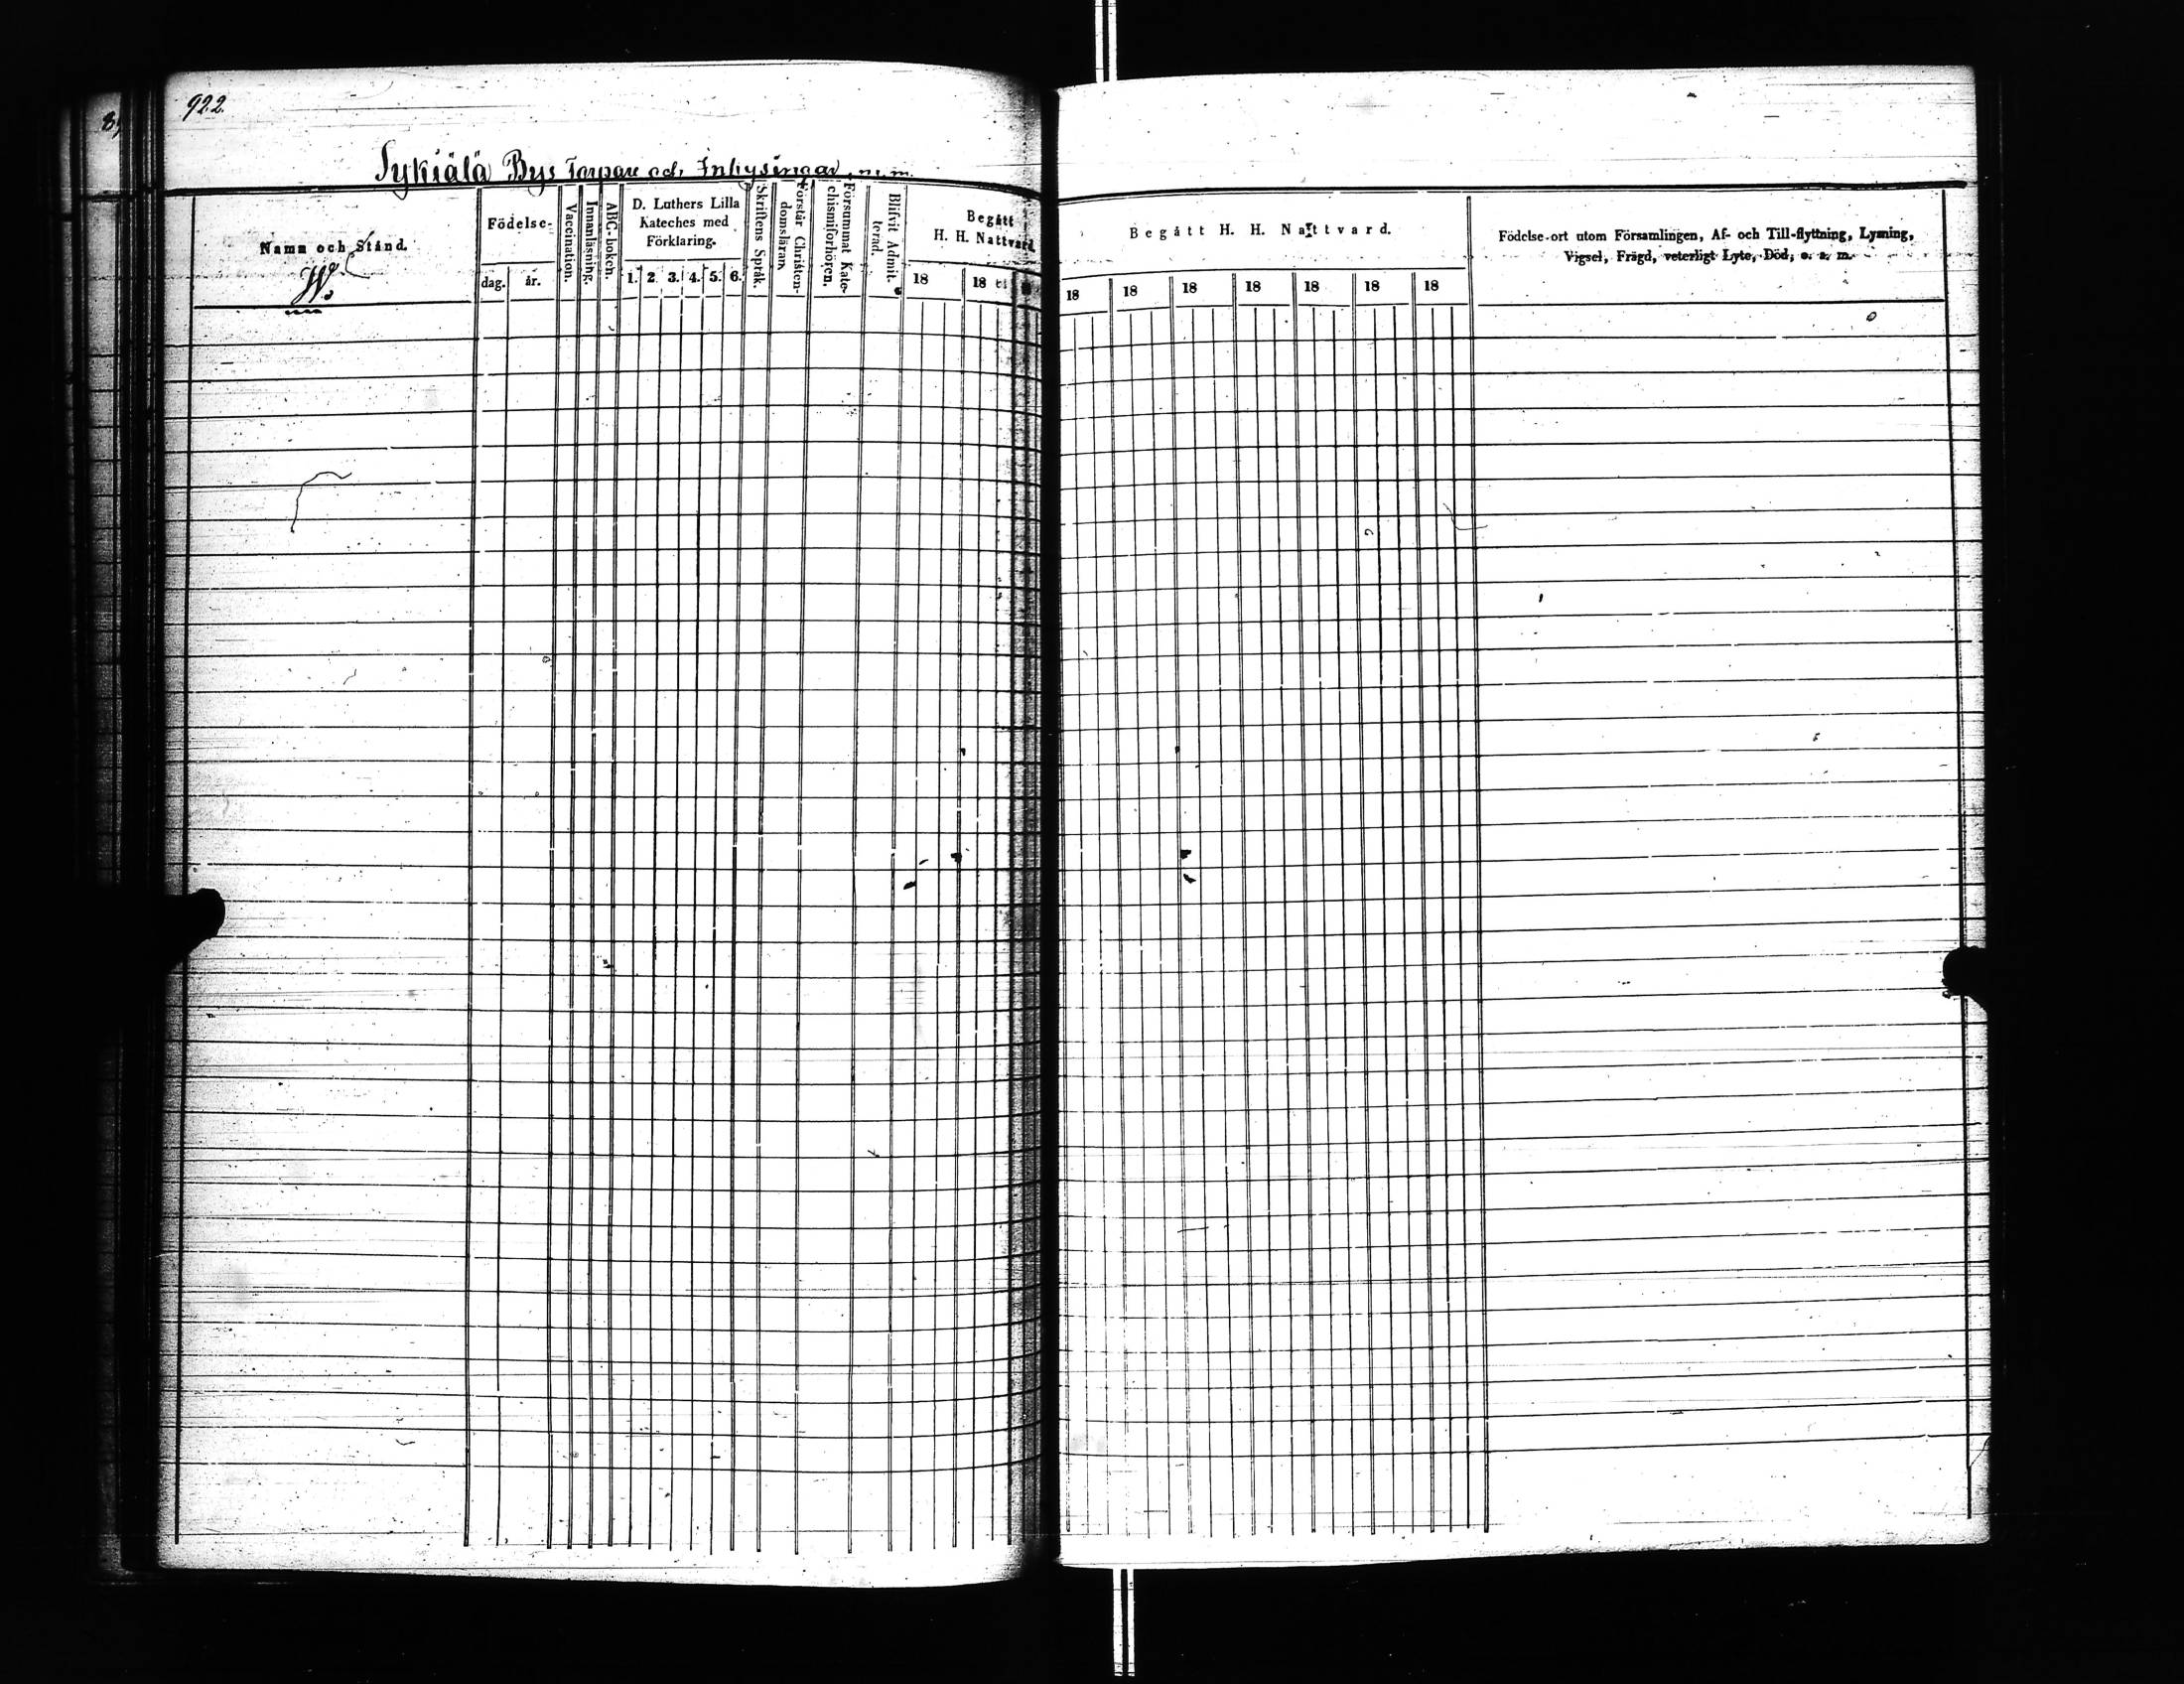 922.
Sykiälä Bys Torpare och Inhysingar, m. m.
Namn och Stånd.
W.
Födelse-
dag. år.
Vaccination.
Innanläsning.
ABC-boken.
D. Luthers Lilla
Kateches med
Förklaring.
1. 2. 3. 4. 5. 6.
Skriftens Språk.
Förstår Christen-
domsläran.
Försummat Kate-
chismiförhören.
Blifvit Admit-
terad.
Begått
H. H. Nattvard
18 18
Begått H. H. Nattvard.
18 18 18 18 18 18 18
Födelse-ort utom Församlingen, Af- och Till-flyttning, Lysning,
Vigsel, Frägd, veterligt Lyte, Död, o. s. m.